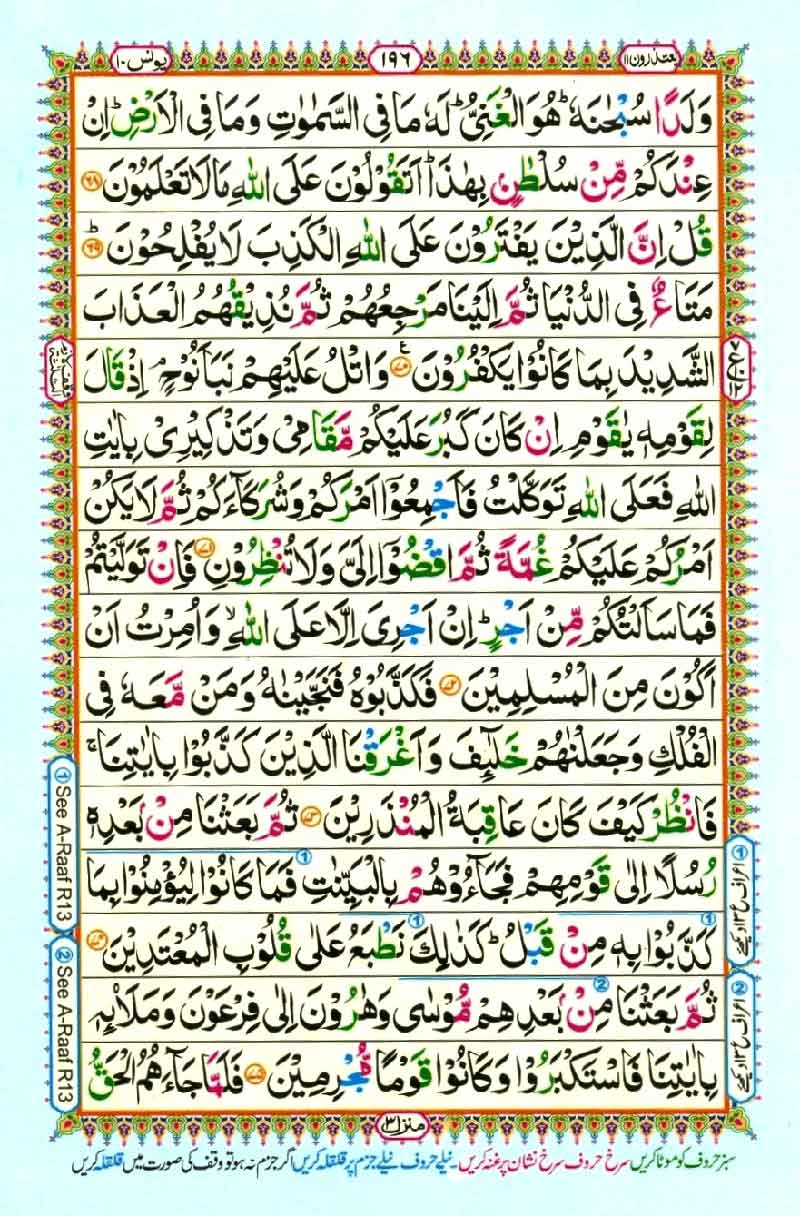 یعتذرون ۱۱
۱۹۶
یونس ۱۰
وَلَدًا سُبْحٰنَهٗ ؕ هُوَ الْغَنِیُّ ؕ لَهٗ مَا فِی السَّمٰوٰتِ وَمَا فِی الْاَرْضِ ؕ اِنْ
عِنْدَكُمْ مِّنْ سُلْطٰنٍۭ بِهٰذَا ؕ اَتَقُوْلُوْنَ عَلَی اللّٰهِ مَا لَا تَعْلَمُوْنَ ۶۸
قُلْ اِنَّ الَّذِیْنَ یَفْتَرُوْنَ عَلَی اللّٰهِ الْكَذِبَ لَا یُفْلِحُوْنَ ؕ ۶۹
مَتَاعٌ فِی الدُّنْیَا ثُمَّ اِلَیْنَا مَرْجِعُهُمْ ثُمَّ نُذِیْقُهُمُ الْعَذَابَ
الشَّدِیْدَ بِمَا كَانُوْا یَكْفُرُوْنَ ۷۰ وَاتْلُ عَلَیْهِمْ نَبَاَ نُوْحٍ ۘ اِذْ قَالَ
لِقَوْمِهٖ یٰقَوْمِ اِنْ كَانَ كَبُرَ عَلَیْكُمْ مَّقَامِیْ وَتَذْكِیْرِیْ بِاٰیٰتِ
اللّٰهِ فَعَلَی اللّٰهِ تَوَكَّلْتُ فَاَجْمِعُوْۤا اَمْرَكُمْ وَشُرَكَآءَكُمْ ثُمَّ لَا یَكُنْ
اَمْرُكُمْ عَلَیْكُمْ غُمَّةً ثُمَّ اقْضُوْۤا اِلَیَّ وَلَا تُنْظِرُوْنِ ۷۱ فَاِنْ تَوَلَّیْتُمْ
فَمَا سَاَلْتُكُمْ مِّنْ اَجْرٍ ؕ اِنْ اَجْرِیَ اِلَّا عَلَی اللّٰهِ ۙ وَاُمِرْتُ اَنْ
اَكُوْنَ مِنَ الْمُسْلِمِیْنَ ۷۲ فَكَذَّبُوْهُ فَنَجَّیْنٰهُ وَمَنْ مَّعَهٗ فِی
الْفُلْكِ وَجَعَلْنٰهُمْ خَلٰٓىِٕفَ وَاَغْرَقْنَا الَّذِیْنَ كَذَّبُوْا بِاٰیٰتِنَا ۚ
فَانْظُرْ كَیْفَ كَانَ عَاقِبَةُ الْمُنْذَرِیْنَ ۷۳ ثُمَّ بَعَثْنَا مِنْۢ بَعْدِهٖ
رُسُلًا اِلٰی قَوْمِهِمْ فَجَآءُوْهُمْ بِالْبَیِّنٰتِ فَمَا كَانُوْا لِیُؤْمِنُوْا بِمَا
كَذَّبُوْا بِهٖ مِنْ قَبْلُ ؕ كَذٰلِكَ نَطْبَعُ عَلٰی قُلُوْبِ الْمُعْتَدِیْنَ ۷۴
ثُمَّ بَعَثْنَا مِنْۢ بَعْدِهِمْ مُّوْسٰی وَهٰرُوْنَ اِلٰی فِرْعَوْنَ وَمَلَا۟ئِهٖ
بِاٰیٰتِنَا فَاسْتَكْبَرُوْا وَكَانُوْا قَوْمًا مُّجْرِمِیْنَ ۷۵ فَلَمَّا جَآءَهُمُ الْحَقُّ
① See A-Raaf R13
② See A-Raaf R13
منزل ۳
سبز حروف کو موٹا کریں سرخ حروف سرخ نشان پر غنہ کریں۔ نیلے حروف نیلے جزم پر قلقلہ کریں اگر جزم نہ ہو تو وقف کی صورت میں قلقلہ کریں